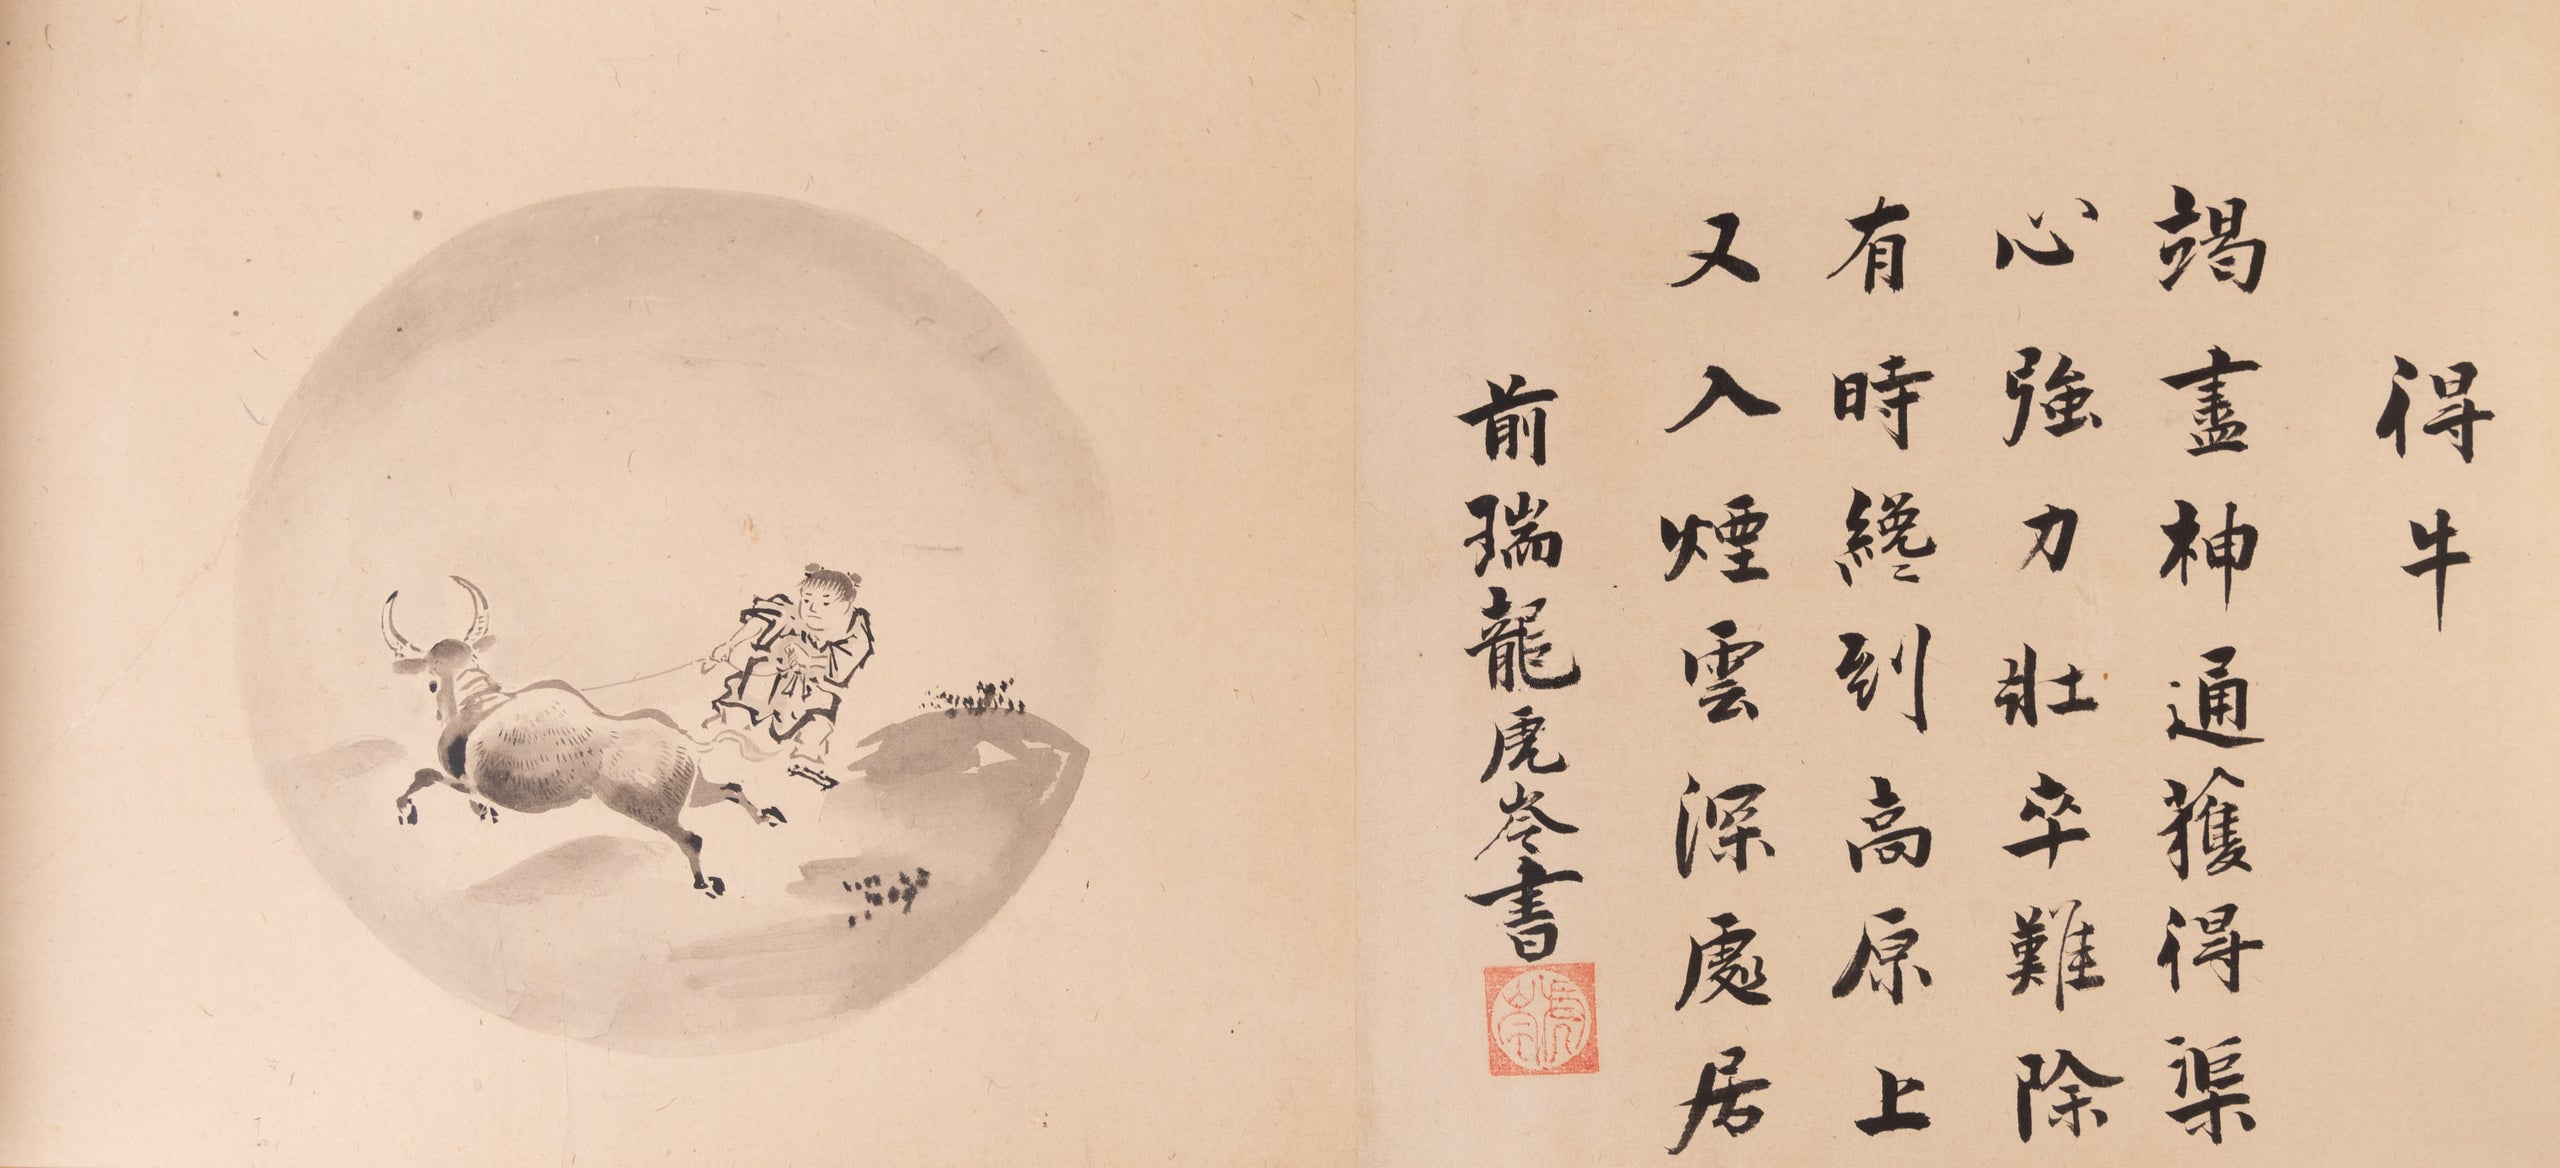 得牛
竭盡神通獲得渠
心強力壯卒難除
有時纔到高原上
又入煙雲深處居
前瑞龍虎岑書